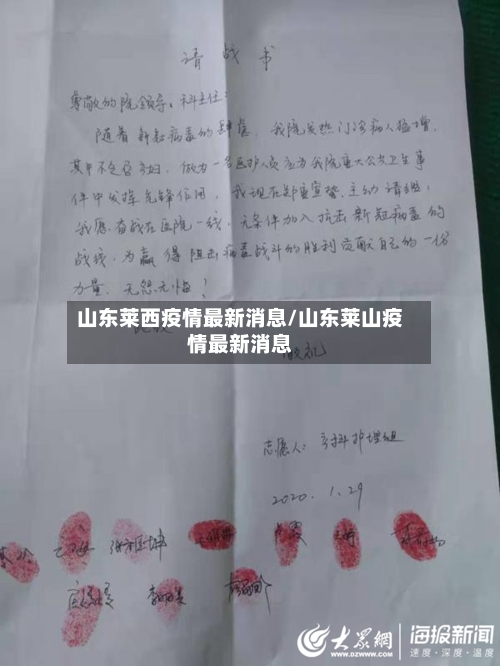 请战书
尊敬的院领导、科主任:
随着新冠病毒的肆虐,我院发热门诊病人猛增,
其中不乏孕妇,做为一名医护人员应为我院重大公共卫生事
件中发挥先锋作用,我现在郑重宣誓,主动请缨,
我愿奋战在医院一线,无条件加入抗击新冠病毒的
战线,为赢得阻击病毒战斗的胜利贡献自己的一份
力量,无怨无悔!
山东莱西疫情最新消息/山东莱山疫
情最新消息
敬礼
志愿人:
护理组
2020.1.29
大众網
WWW.DZWWW.COM
海报新闻
速度·深度·温度